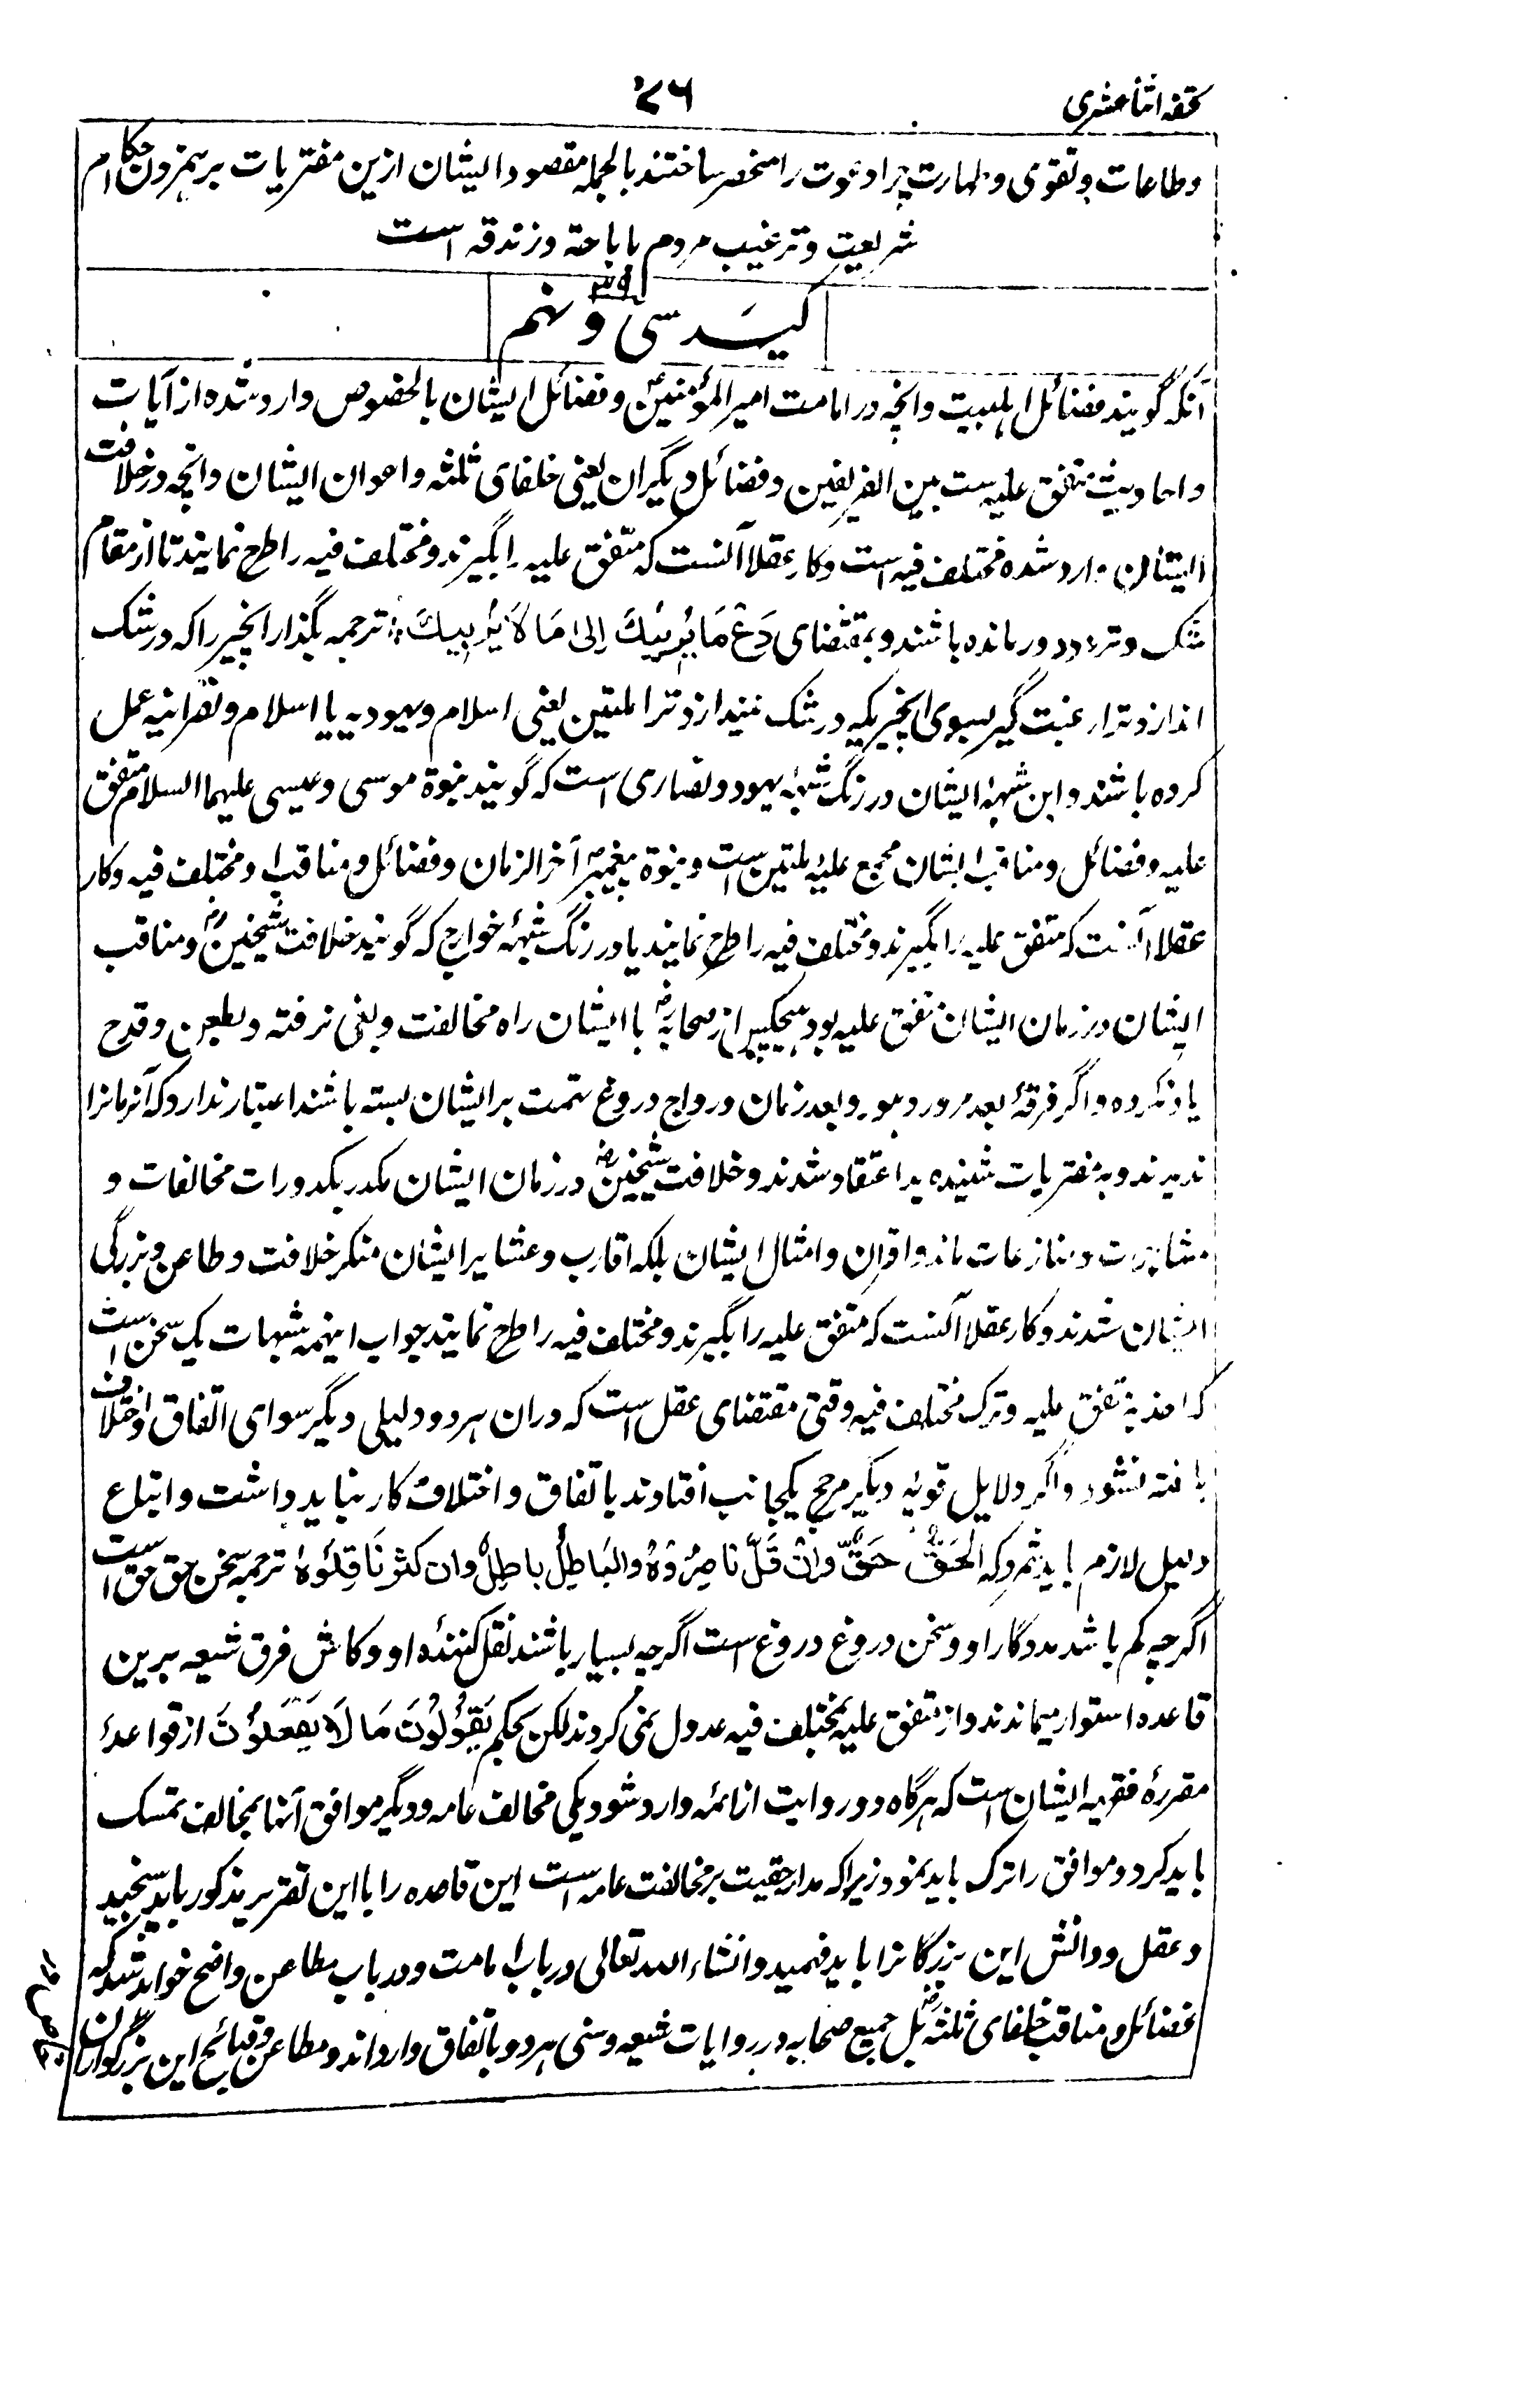 تحفه اثنا عشری
۷۶
وطاعات وتقوی وطهارت چرا دعوت را منحصر ساختند بالجمله مقصود ایشان ازین مفتریات برهمزدن احکام
شریعت وترغیب مردم باباحة وزندقه است
کیَد سی و نهم
آنکه گویند فضائل اهلبیت وانچه در امامت امیر المؤمنین وفضائل ایشان بالخصوص وارد شده از آیات
واحادیث متفق علیه ست بین الفریقین وفضائل دیگران یعنی خلفای ثلثه واعوان ایشان وانچه در خلافت
ایشان وارد شده مختلف فیه است وکار عقلا آنست که متفق علیه را بگیرند ومختلف فیه را طرح نمایند تا از مقام
شک وتردد دور مانده باشند وبمقتضای دَعْ مَا یُرِیْبُكَ اِلیٰ مَا لَا یُرِیبُكَ ترجمه بگذار انچیز را که در شک
اندازد ترا رغبت گیر بسوی انچیزیکه در شک نیندازد ترا ملتین یعنی اسلام ویهودیه یا اسلام ونصرانیه عمل
کرده باشند واین شبهۀ ایشان در رنگ شبهۀ یهود ونصاری است که گویند نبوة موسی وعیسی علیهما السلام متفق
علیه وفضائل ومناقب ایشان مجمع علیه ملتین است ونبوة پیغمبر آخر الزمان وفضائل ومناقب او مختلف فیه وکار
عقلا آنست که متفق علیه را بگیرند ومختلف فیه را طرح نمایند یا در رنگ شبهۀ خوارج که گویند خلافت شیخین رض ومناقب
ایشان در زمان ایشان متفق علیه بود هیچکس از صحابه رض با ایشان راه مخالفت وبغی نرفته وبطعن وقدح
یاد نکرده واگر فرقۀ بعد مرور دهور وبعد زمان ورواج دروغ تهمت بر ایشان بسته باشند اعتبار ندارد که آنزمانرا
ندیدند وبه مفتریات شنیده بد اعتقاد شدند وخلافت شیخین رض در زمان ایشان مکدر بکدورات مخالفات و
مشاجرت ومنازعات ماند واقران وامثال ایشان بلکه اقارب وعشایر ایشان منکر خلافت وطاعن در بزرگی
ایشان شدند وکار عقلا آنست که متفق علیه را بگیرند ومختلف فیه را طرح نمایند جواب اینهمه شبهات یک سخن است
که اخذ به متفق علیه وترک مختلف فیه وقتی مقتضای عقل است که دران هر دو دلیلی دیگر سوای اتفاق واختلاف
یافته نشود واگر دلایل قویه دیگر مرجح یکجانب افتادند باتفاق واختلاف کار نباید داشت واتباع
دلیل لازم باید شمرد که الحَقُّ حَقٌّ وانْ قَلَّ ناصِرُوْهُ والبَاطِلُ باطِلٌ وان کثر نَاقِلُوهُ ترجمه سخن حق حق است
اگرچه کم باشد مددگار او وسخن دروغ دروغ است اگرچه بسیار باشند نقل کنندۀ او وکاش فرق شیعه برین
قاعده استوار میماندند واز متفق علیه بمختلف فیه عدول نمی کردند لکن بحکم یَقُوْلُوْنَ مَا لَا یَفْعَلُوْنَ از قواعدۀ
مقررۀ فقهیه ایشان است که هرگاه دو روایت از ائمه وارد شود یکی مخالف عامه ودیگر موافق آنها بمخالف تمسک
باید کرد وموافق را ترک باید نمود زیرا که مدار حقیت بر مخالفت عامه است این قاعده را با این تقریر مذکور باید سنجید
وعقل ودانش این بزرگانرا باید فهمید وانشاء الله تعالی در باب امامت ودر باب مطاعن واضح خواهد شد که
فضائل ومناقب خلفای ثلثه رض بل جمیع صحابه در روایات شیعه وسنی هر دو باتفاق وارد اند ومطاعن وقبائح این بزرگواران